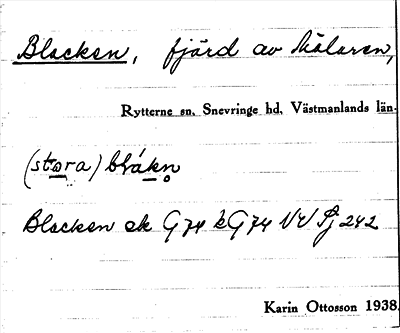 Blacken, fjärd av Mälaren,
Rytterne sn. Snevringe hd, Västmanlands län.
(stora) blákn̥
Blacken ek G 74 k G 74 NV Sj 242
Karin Ottosson 1938.